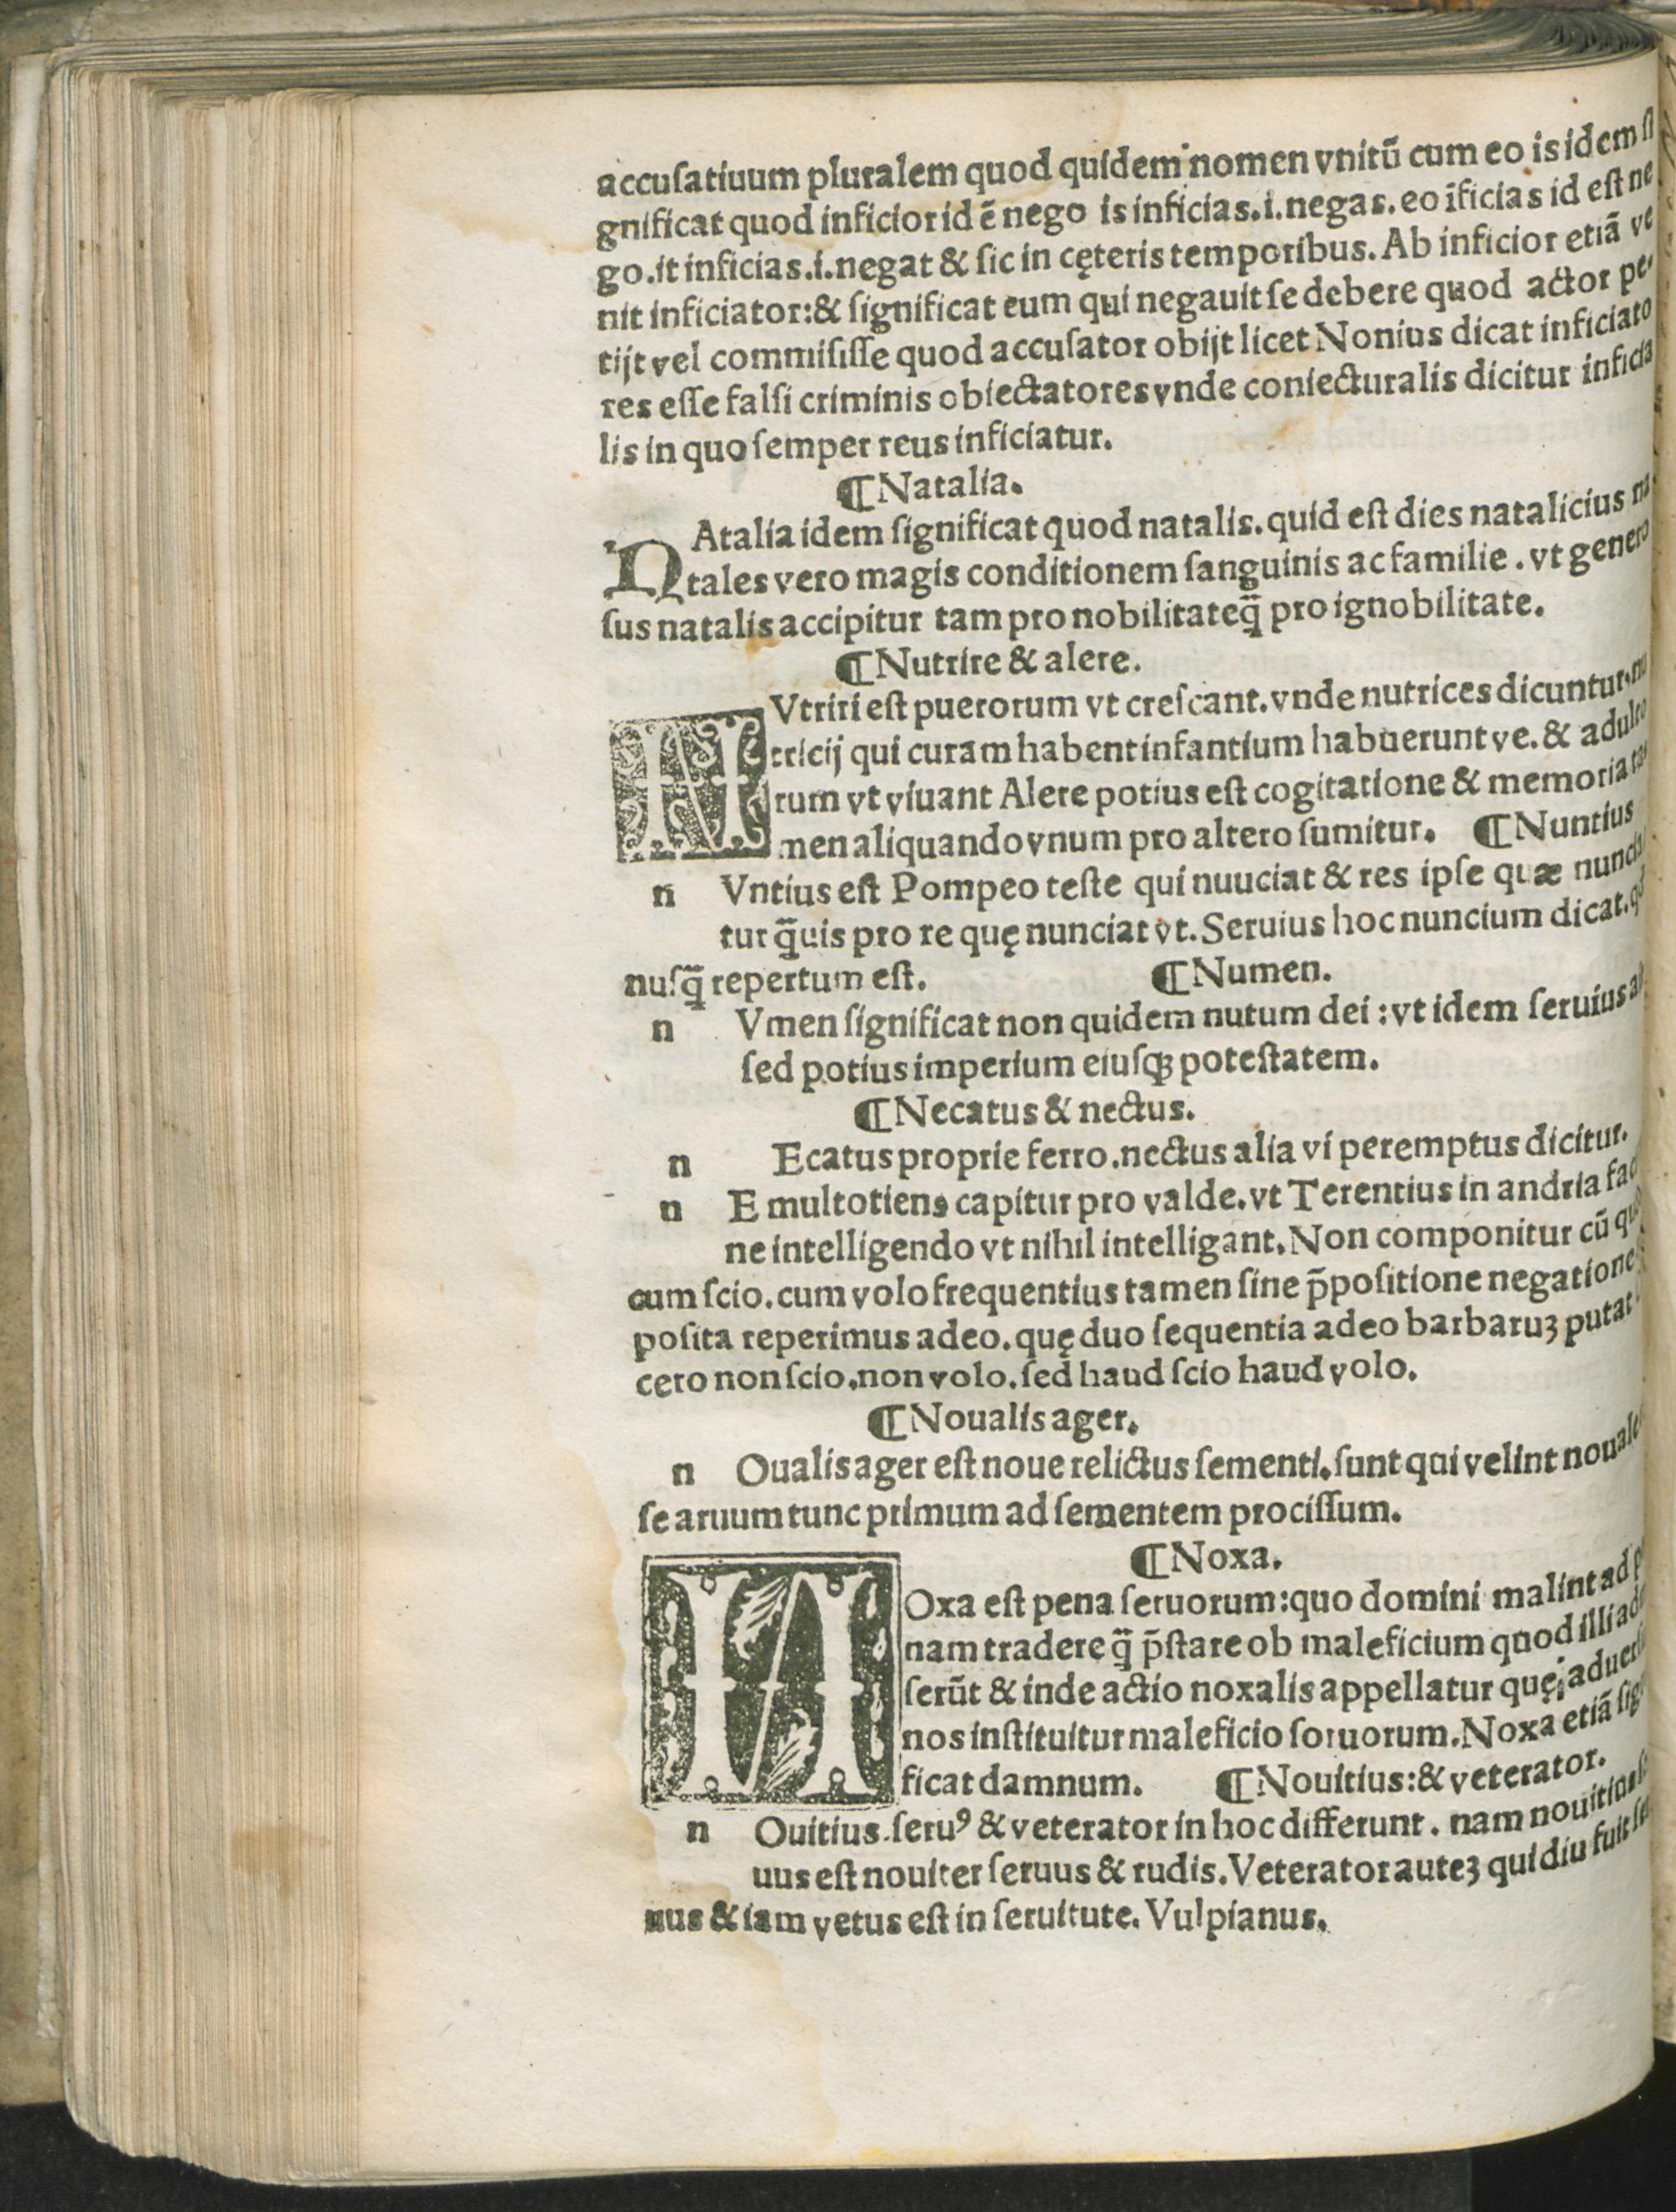 accuſatiuum pluralem quod quidem nomen vnitū cum eo is idem ſi
gnificat quod inficior id ē nego is inficias.i.negas.eo īficias id eſt ne
go.it inficias.i.negat & ſic in cęteris temporibus. Ab inficior etiā ve
nit inficiator:& ſignificat eum qui negauit ſe debere quod actor pe-
tijt vel commiſiſſe quod accuſator obijt licet Nonius dicat inficiato
res eſſe falſi criminis obiectatores vnde coniecturalis dicitur inficia
lis in quo ſemper reus inficiatur.
¶Natalia.
NAtalia idem ſignificat quod natalis.quid eſt dies natalicius na
tales vero magis conditionem ſanguinis ac familie.vt genero
ſus natalis accipitur tam pro nobilitate q̄ pro ignobilitate.
¶Nutrire & alere.
NVtriri eſt puerorum vt creſcant.vnde nutrices dicuntur.nu
tricij qui curam habent infantium habuerunt ve.& adulto
rum vt viuant Alere potius eſt cogitatione & memoria ta
men aliquando vnum pro altero ſumitur. ¶Nuntius
n Vntius eſt Pompeo teſte qui nuuciat & res ipſe quæ nuncia
tur q̄uis pro re quę nunciat vt. Seruius hoc nuncium dicat.
nuſq̄ repertum eſt. ¶Numen.
n Vmen ſignificat non quidem nutum dei :vt idem ſeruius
ſed potius imperium eiuſqꝫ poteſtatem.
¶Necatus & nectus.
n Ecatus proprie ferro.nectus alia vi peremptus dicitur.
n E multotiens capitur pro valde.vt Terentius in andria
ne intelligendo vt nihil intelligant. Non componitur cū
cum ſcio.cum volo frequentius tamen ſine p̄poſitione negatione
poſita reperimus adeo.quę duo ſequentia adeo barbaruꝫ putat
cero non ſcio.non volo.ſed haud ſcio haud volo.
¶Noualis ager.
n Oualis ager eſt noue relictus ſementi.ſunt qui velint
ſe aruum tunc primum ad ſementem prociſſum.
¶Noxa.
NOxa eſt pena ſeruorum:quo domini malint ad
nam tradere q̄ p̄ſtare ob maleficium quod illi
ſerūt & inde actio noxalis appellatur quę
nos inſtituitur maleficio ſoruorum. Noxa etiā
ficat damnum. ¶Nouitius:& veterator.
n Ouitius ſeruꝰ & veterator in hoc differunt. nam nouitius
uus eſt nouiter ſeruus & rudis. Veterator auteꝫ qui diu fuit
uus & iam vetus eſt in ſeruitute. Vulpianus.